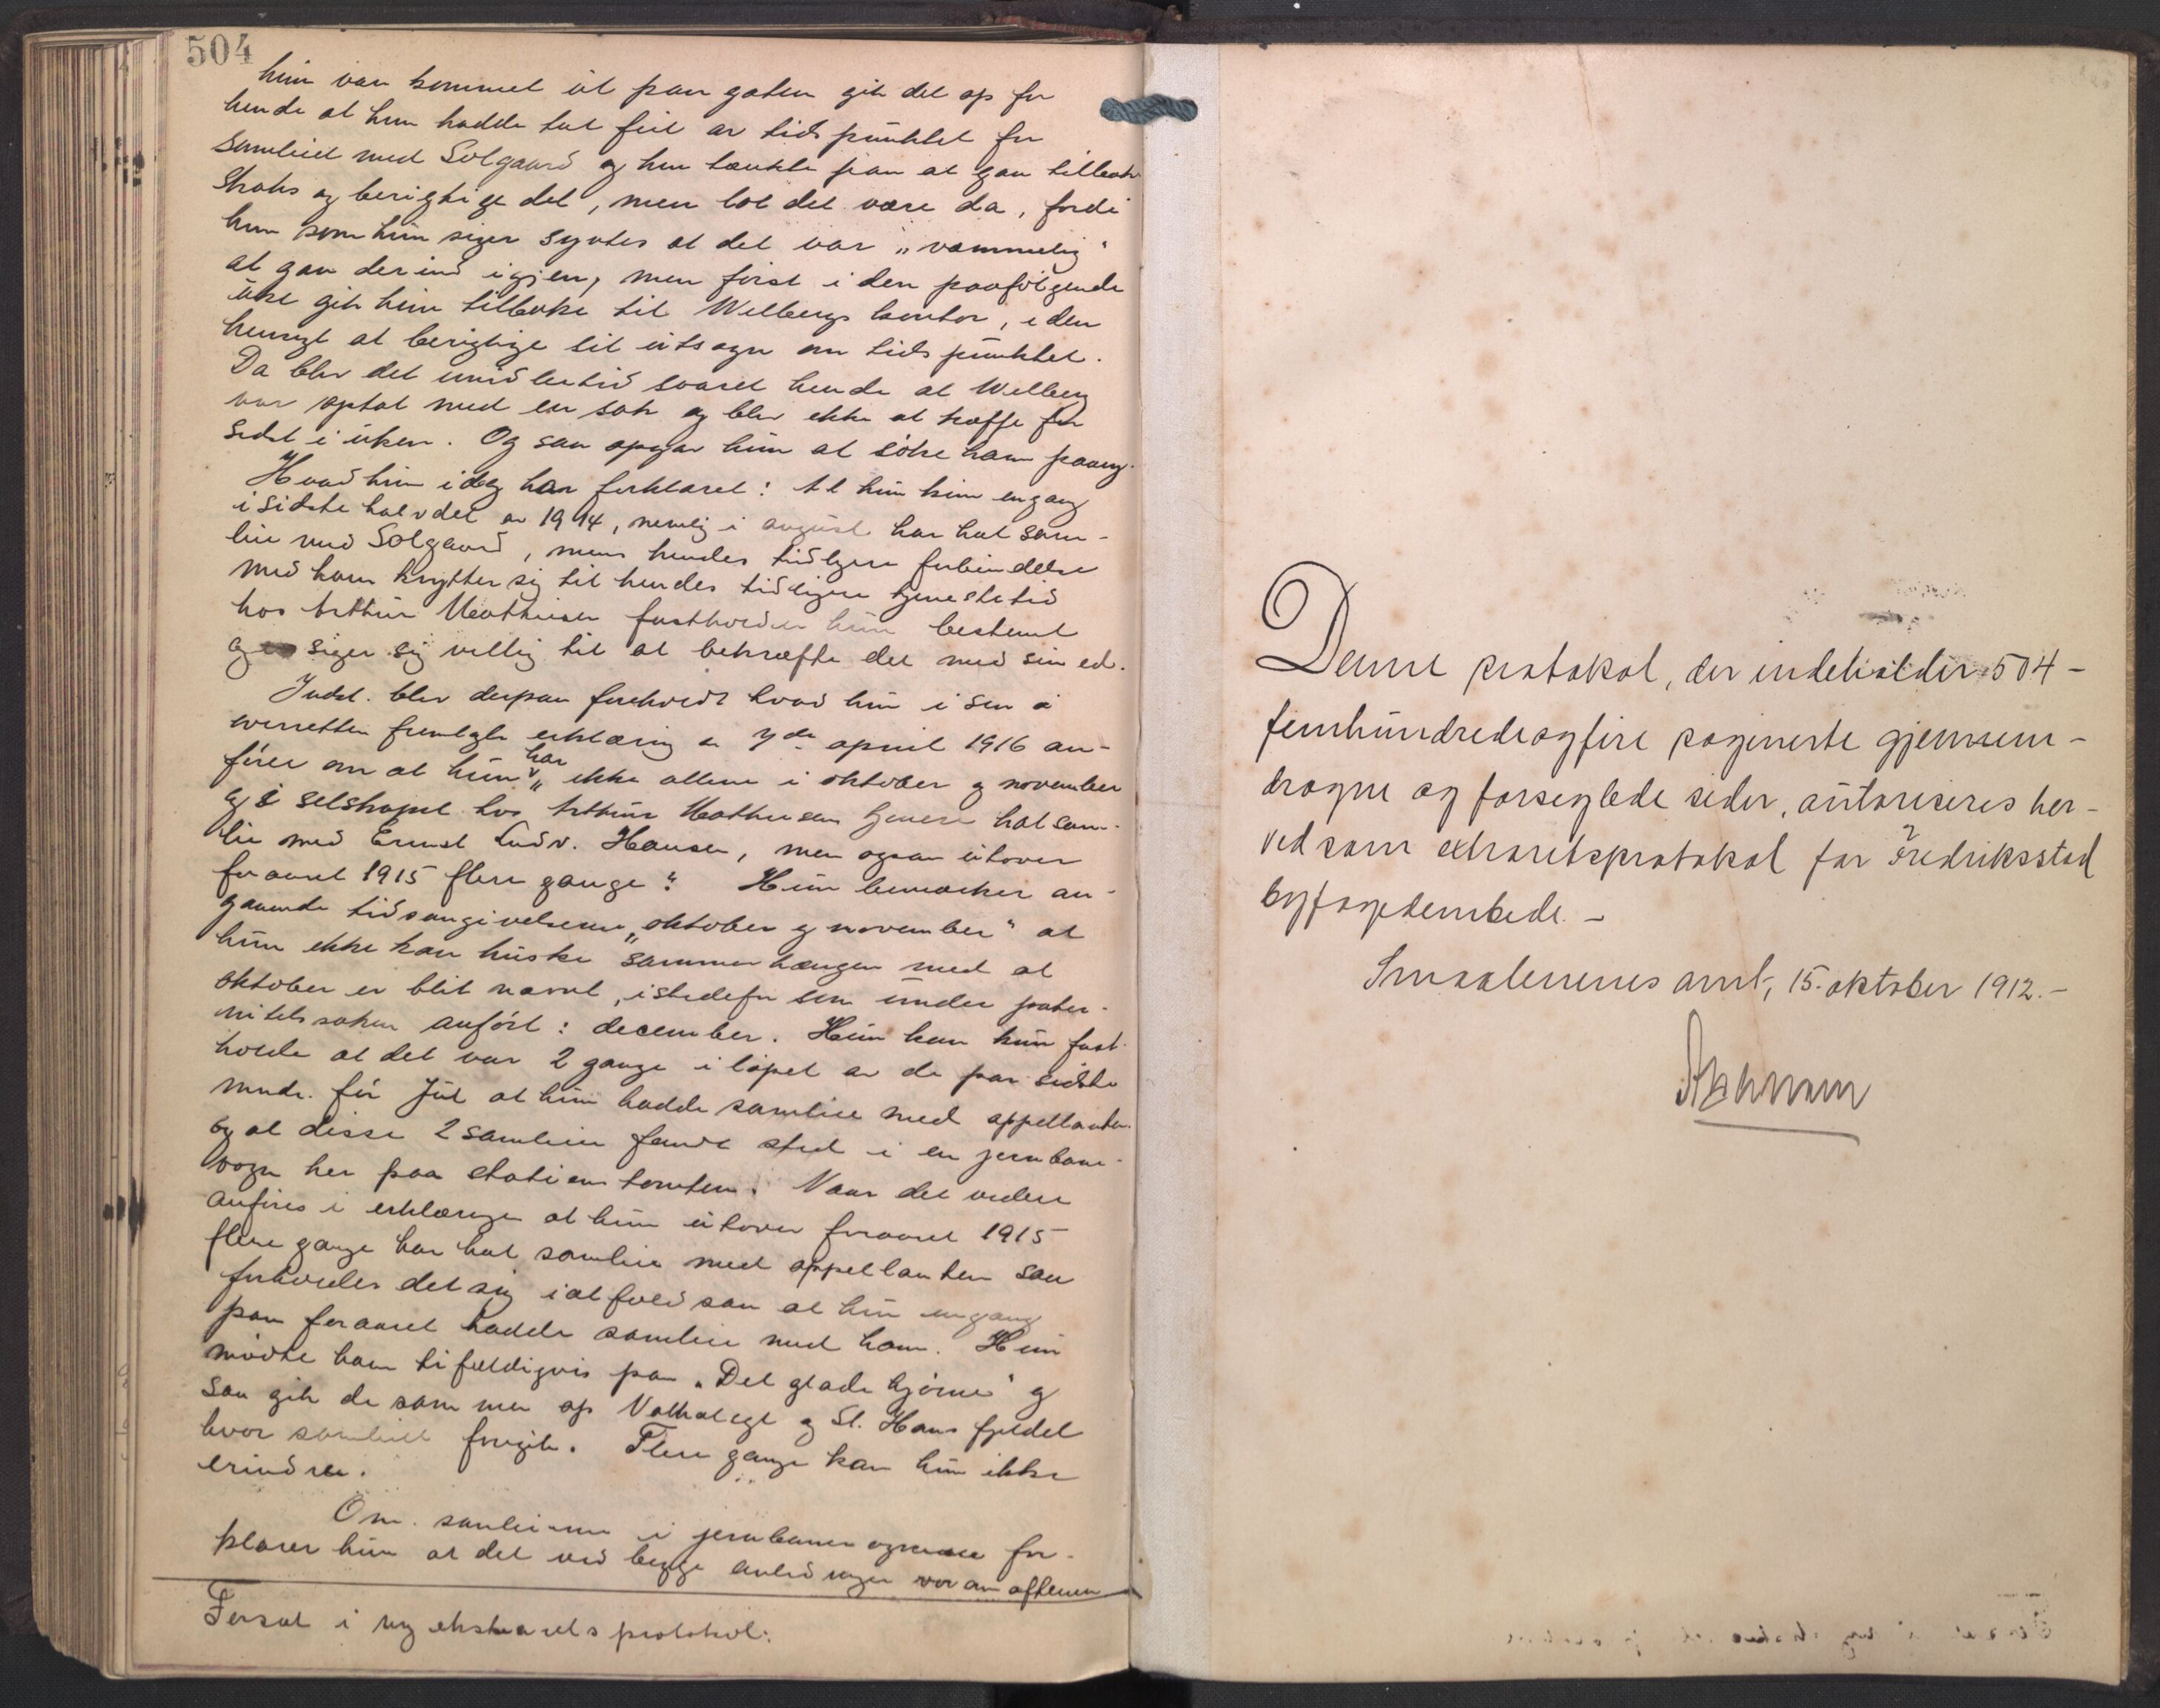 504
hun var kommet ut paa gaten gik det op for
hende at hun hadde tat feil av tidspunktet for
samleiet med Solgaard og hun tænkte paa at gaa tilbake
straks og berigtige det, men lot det være da, fordi
hun som hun siger syntes at det var „vammelig"
at gaa derind igjen, men først i den paafølgende
uke gik hun tilbake til Welbergs kontor, i den
hensigt at berigtige sit utsagn om tidspunktet.
Da blev det imidlertid svaret hende at Welberg
var optat med en sak og blev ikke at træffe før
sidst i uken. Og saa opgav hun at søke ham paany.
Hvad hun idag har forklaret: At hun kun engang
i sidste halvdel av 1914, nemlig i august har hat sam-
leie med Solgaard, mens hendes tidligere forbindelse
med ham knytter sig til hendes tidligere tjenestetid
hos Arthur Mathiesen fastholder hun bestemt
og siger sig villig til at bekræfte det med sin ed.
Indst. blev derpaa foreholdt hvad hun i sin i
overretten fremlagte erklæring av 7de april 1916 an-
fører om at hun „har ikke allene i oktober og november
og i selskapet hos Arthur Mathiesen senere hat sam-
leie med Ernst Ludv. Hansen, men ogsaa utover
foraaret 1915 flere gange". Hun bemerker an-
gaaende tidsangivelsene „oktober og november" at
hun ikke kan huske sammenhængen med at
oktober er blit nævnt, istedetfor som under pater-
nitetssaken anført: december. Hun kan kun fast-
holde at det var 2 gange i løpet av de par sidste
mndr. før Jul at hun hadde samleie med appellanten
og at disse 2 samleier fandt sted i en jernbane-
vogn her paa stationstomten. Naar det videre
anføres i erklæringen at hun utover foraaret 1915
flere gange har hat samleie med appellanten saa
forholder det sig ialfald saa at hun engang
paa foraaret hadde samleie med ham. Hun
møtte ham tilfældigvis paa „Det glade hjørne" og
saa gik de sammen op Valhalegt og St. Hans fjeldet
hvor samleiet foregik. Flere gange kan hun ikke
erindre.
Om samleierne i jernbanevognene for-
klarer hun at det ved begge anledninger var om aftenen
Forsat i ny ekstraretsprotokol.
Denne protokol, der indeholder 504 -
femhundredeogfire paginerte gjennem-
dragne og forseglede sider, autoriseres her-
ved som extraretsprotokol for Fredriksstad
byfogedembede. -
Smaalenenes amt, 15. oktober 1912. -